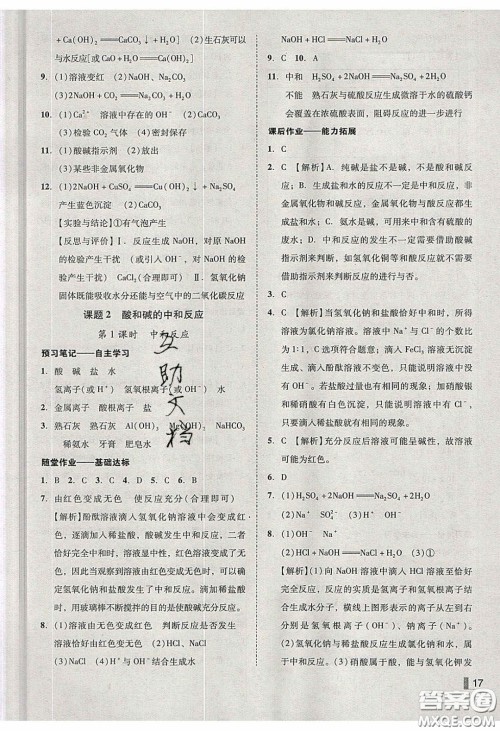 +Ca(OH)₂══CaCO₃↓+H₂O (2)生石灰可以
与水反应[或 CaO+H₂O══Ca(OH)₂]
9. (1)溶液变红 (2)Ca(OH)₂
(3)2NaOH+CO₂══Na₂CO₃+H₂O
10. (1)Ca²⁺ 溶液中存在的 OH⁻ (2)
(3)检验 CO₂ 气体 (4)密封保存
11. (1)酸碱指示剂 (2)放出
(3)某些非金属氧化物
12. (1)2NaOH+CuSO₄══Cu(OH)₂↓+Na₂SO₄
产生蓝色沉淀 (2)CaCO₃
【实验与结论】①有气泡产生
【反思与评价】Ⅰ. 反应生成 NaOH,对原 NaOH 的
检验产生干扰 (或引入 OH⁻,对原 NaOH 的检
验产生干扰) CaCl₂(合理即可) Ⅱ. 氢氧化钠
固体既能吸收水分还能与空气中的二氧化碳反应
课题 2 酸和碱的中和反应
第 1 课时 中和反应
预习笔记——自主学习
1. 酸 碱 盐 水
氢离子(或 H⁺) 氢氧根离子(或 OH⁻) 水
2. 金属离子 酸根离子 盐
3. 熟石灰 熟石灰 Al(OH)₃ Mg(OH)₂ NaHCO₃
稀氨水 牙膏 肥皂水
随堂作业——基础达标
1. B 2. B 3. C 4. D 5. B 6. D
7. 由红色变成无色 使反应充分(合理即可)
【解析】酚酞溶液滴入氢氧化钠溶液中会变红
色,逐滴加入稀盐酸,溶液由红色变成无色,二者
恰好完全中和时,溶液显中性,呈现出无色。
因此当观察到溶液由红色变成无色时,可以确
定氢氧化钠和盐酸发生了中和反应。滴加盐酸
时,用玻璃棒不断搅拌的目的是使酸碱充分反应。
8. (1)溶液由红色变成无色 判断反应是否发生
NaCl (2)HCl、NaCl
(3)NaCl (4)H⁺ 和 OH⁻ 结合生成水
NaOH+HCl══NaCl+H₂O
9. C 10. A
11. 中和 H₂SO₄+2NaOH══Na₂SO₄+2H₂O
不能 熟石灰与硫酸反应生成微溶于水的硫酸钙
会覆盖在浓硫酸表面,阻碍反应的进一步进行
课后作业——能力拓展
1. C
2. C 【解析】A. 纯碱是盐不是碱,不是酸和碱反
应,不是中和反应,不会生成盐和水,而是生成盐、水和二氧化碳。
B. 生成盐和水的反应不一定是中和反应,非
金属氧化物和碱反应、金属氧化物和酸反应都生
成盐和水;C. 氨水是碱,可以与土壤中的酸发生
中和反应;D. 中和反应的发生不一定需要借助
指示剂来判断,如氢氧化铜等和酸反应都不需借
助指示剂来判断反应的进行与否。
3. C
4. C 【解析】当氢氧化钠和盐酸恰好中和时,所
得溶液为氯化钠溶液,溶液中 Na⁺ 和 Cl⁻ 的个数比
1∶1,C 选项符合题意;滴入 FeCl₃ 溶液无沉淀
生成,只能说明氢氧化钠没有剩余,但稀盐酸可能
过量;混合前氢氧化钠和稀盐酸的质量相等,但二
者不一定恰好完全中和;加入硝酸酸化的硝酸银
溶液有沉淀生成,只能说明溶液中有 Cl⁻,不能说
明恰好完全中和。
5. C 【解析】充分反应后溶液可能呈碱性,故溶液
可能变红。
6. D
7. (1)H₂SO₄+2NaOH══Na₂SO₄+2H₂O
(2)Na⁺ SO₄²⁻
8. (1)NaOH+HCl══NaCl+H₂O
(2)OH⁻ (3)①
【解析】(1)向 NaOH 溶液中滴加稀盐酸至恰好
完全反应,实质是氢离子和氢氧根离子结合生成
水分子,横线上图形表示的微观离子从左到右分
别是氢氧根离子(OH⁻)、钠离子(Na⁺)、氯离子
(Cl⁻)。(3)硝酸属于酸,能与氢氧化钾发
17
互
助
文
档
答案圈
MXQE.COM